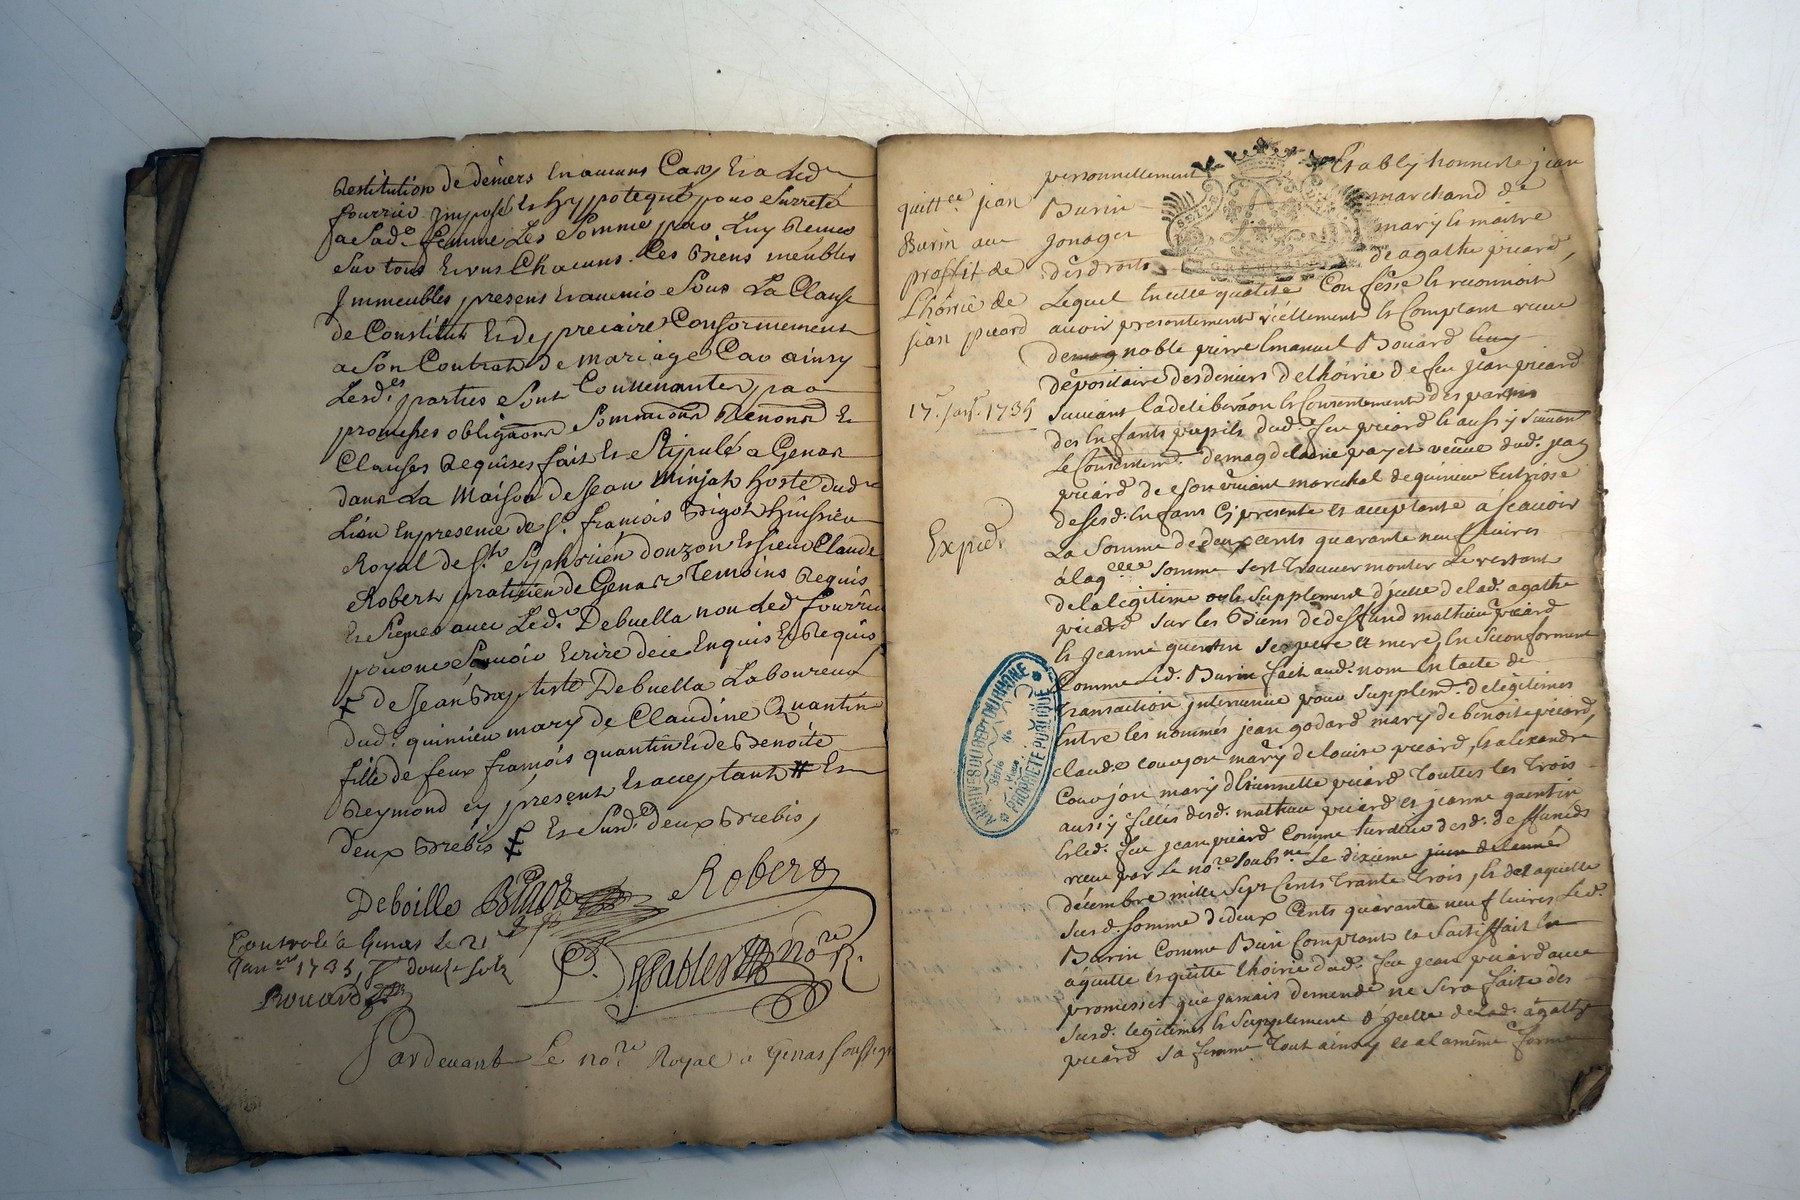 Restitution de deniers en aucuns Cas, Et a Led.
fourrier Imposé et hypotequé pour surreté
a sad.e femme Les Somme par Luy Reçues
sur tous et uns Chacuns Ces Biens meubles
Immeubles presens et avenir Sous La Clause
de Constitut Et de precaire Conformement
a Son Contrat de mariage Car ainsy
Lesd.es parties Sont Convenantes par
promesses obligaõns Soumissions Renonõns Et
Clauses Requises fait et Stipulé a Genas
dans La Maison de Jean Minjat hoste dud.
Lieu En presence de S.r françois Bigot huissier
Royal de S.t Symphorien d'ouzon Et sieur Claude
Robert praticien de Genas Temoins Requis
Et Signés avec Led. Debuella non Led. fourrier
pour ne Sçavoir Ecrire de ce Enquis Et Requis
Ɫ de Jean Baptiste Debuella Laboureur
dud. quinsieu mary de Claudine Quantin
fille de feux françois quantin et de Benoite
Reymond cy present Et acceptant # Et
Deux Brebis Ɫ Et Susd. deux Brebis,
Deboille Bigot Robert
Controlé a Genas Le 21
Janv.er 1735, R. douze sols
Rouard
Dessables no.re R.
Pardevant Le no.re Royal a Genas soussigné
quitt.ce jean
Burin au
proffit de
L'hoirie de
jean picard
17.e janv. 1735
Expied.
personnellement Etably honneste jean
Burin marchand de
jonages mary et maitre
des droits de agathe picard,
Lequel En cette qualité Confesse et reconnoit
avoir presentement réellement et Comptant receu
de noble pierre Emanuel Bouard
dépositaire des deniers de l'hoirie de feu jean picard
suivant la deliberãon et Consentement des parens
des Enfants pupils dud. feu picard et aussy suivant
Le Consentem.t de magdelaine payet veuve dud. jean
picard de son vivant marechal de quinsieu Tutrisse
de sesd. Enfans cy presente et acceptante à scavoir
La Somme de deux cents quarante neuf livres
à laq.elle somme sest trouver monter Le restant
de la légitime ou et supplement d'icelle de lad. agathe
picard sur les Biens de deffund mathieu picard
et jeanne quentin ses pere et mere, En se conformant
Comme Led. Burin fait aud. nom En lacte de
transaction intervenue pour supplem.t de légitimes
Entre les nommés jean godard mary de benoite picard,
claude couvjon mary de louise picard, et alexandre
Couvjon mary d'Etiennette picard toutes les trois
aussy filles desd. mathieu picard et jeanne quentin
Et led. feu jean picard Comme héritier desd. deffunds
receu par Le no.re soub.né Le dixieme
décembre mille Sept Cents trante trois, Et de laquelle
susd. somme de deux Cents quarante neuf livres Led.
Burin Comme Bien Comptant et satisffait En
aquitte et quitte L'hoirie dud. feu jean picard avec
promesses que jamais demende ne sera faite des
susd. legitimes et supplement d'icelle de lad. agathe
picard sa femme Tout ainsy et a la même forme
ARCHIVES DU DEP.T DU RHONE
PROPRIÉTÉ PUBLIQUE